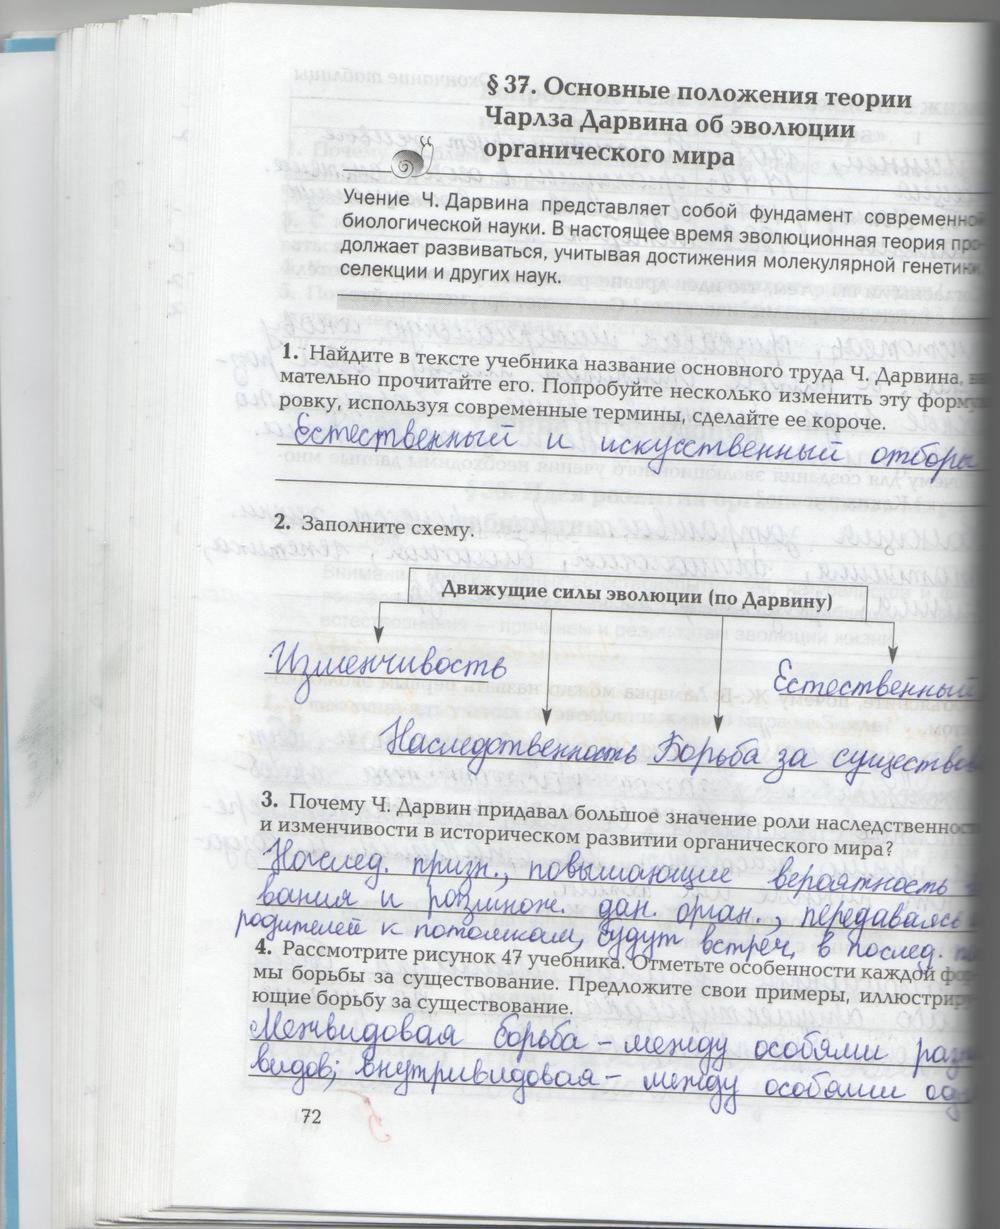 § 37. Основные положения теории
Чарлза Дарвина об эволюции
органического мира
Учение Ч. Дарвина представляет собой фундамент современной
биологической науки. В настоящее время эволюционная теория про-
должает развиваться, учитывая достижения молекулярной генетики,
селекции и других наук.
1. Найдите в тексте учебника название основного труда Ч. Дарвина,
мательно прочитайте его. Попробуйте несколько изменить эту форму
ровку, используя современные термины, сделайте ее короче.
Естественный и искусственный отборы
2. Заполните схему.
Движущие силы эволюции (по Дарвину)
Изменчивость
Естественный
Наследственность Борьба за существов
3. Почему Ч. Дарвин придавал большое значение роли наследственности
и изменчивости в историческом развитии органического мира?
Наслед. призн., повышающие вероятность
вания и размнож. дан. орган., передаваясь
родителей к потомкам, будут встреч. в послед.
4. Рассмотрите рисунок 47 учебника. Отметьте особенности каждой фор-
мы борьбы за существование. Предложите свои примеры, иллюстриру-
ющие борьбу за существование.
Межвидовая борьба – между особями разн
видов; внутривидовая – между особями од
72